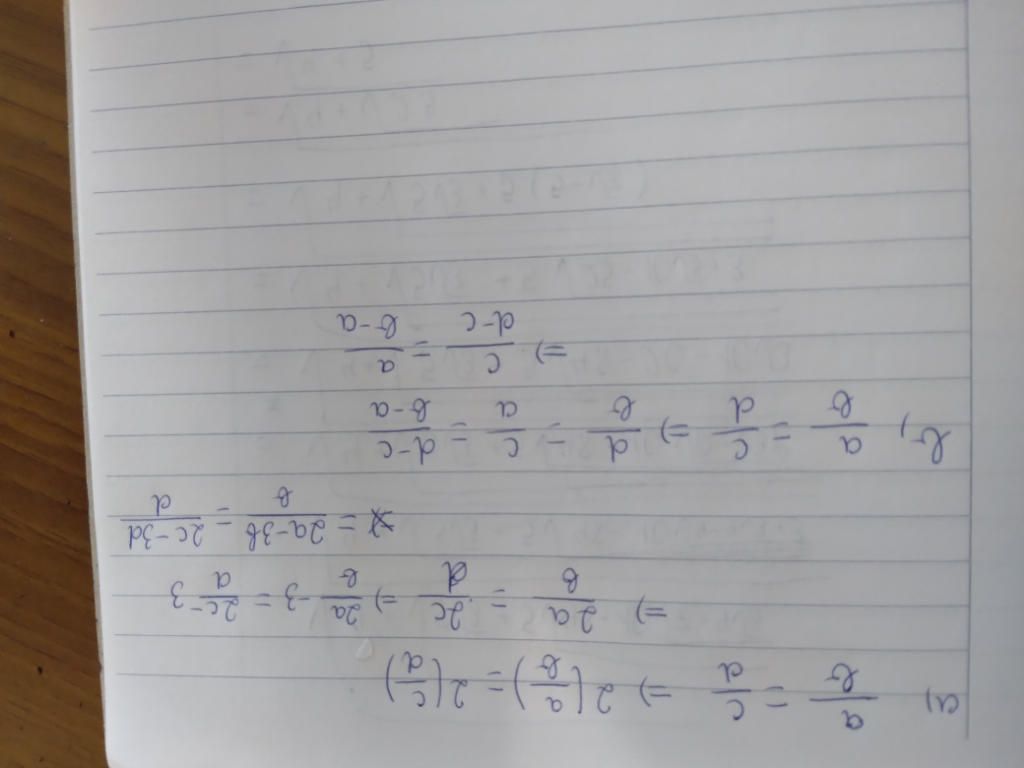 a) a/b = c/d ⇒ 2(a/b) = 2(c/d)
⇒ 2a/b = 2c/d ⇒ 2a/b - 3 = 2c/d - 3
= 2a-3b/b = 2c-3d/d
b, a/b = c/d ⇒ d/b = c/a = d-c/b-a
⇒ c/d-c = a/b-a